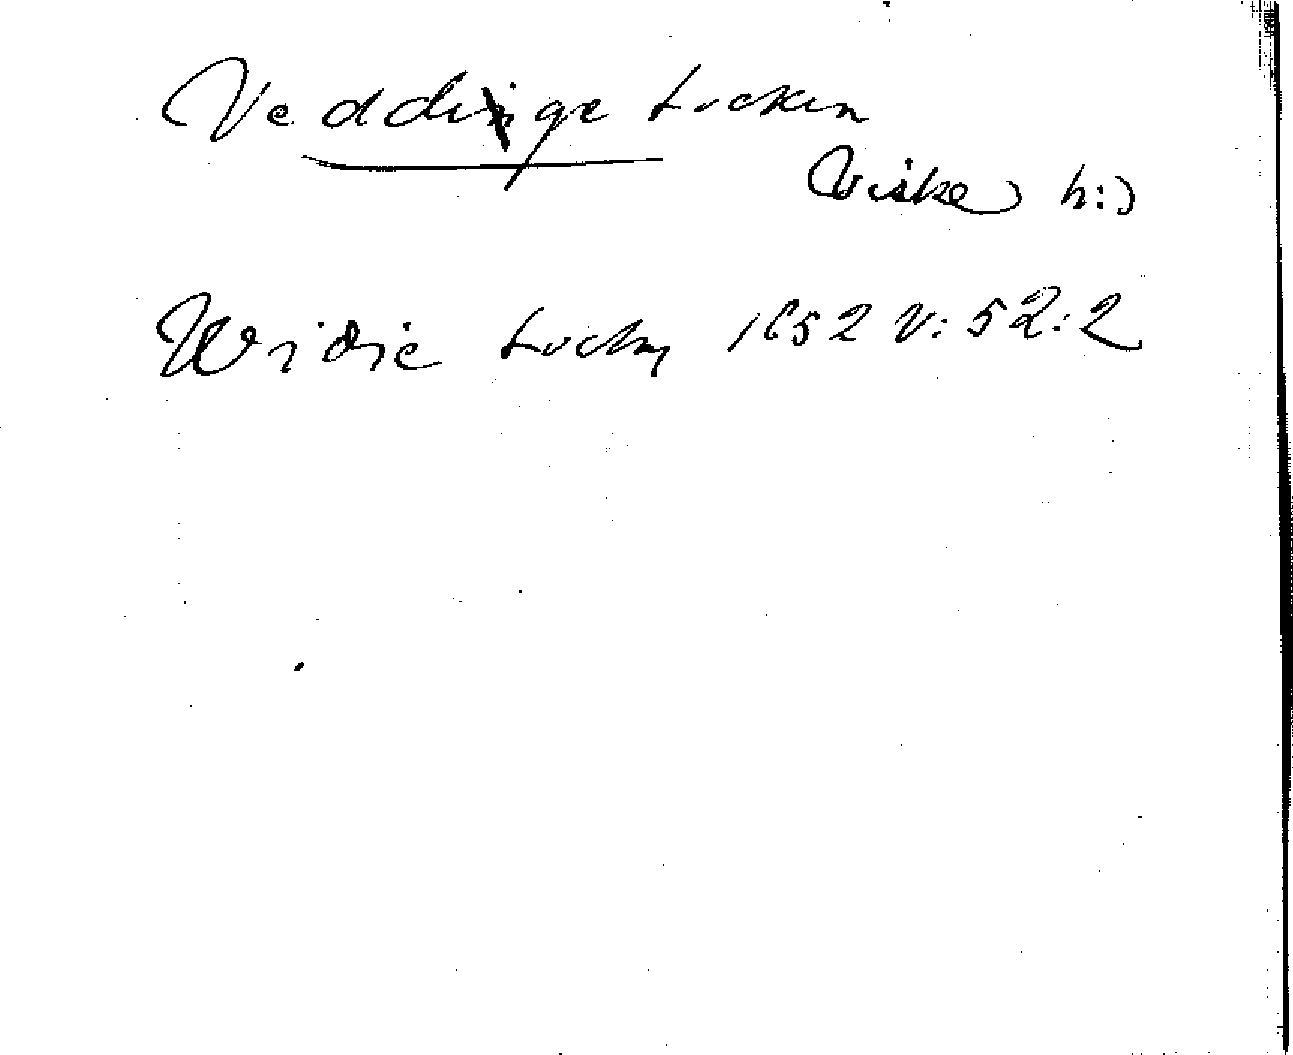 Veddige Lucken
Viske h:)
Widie Lucky 1652 V: 52:2